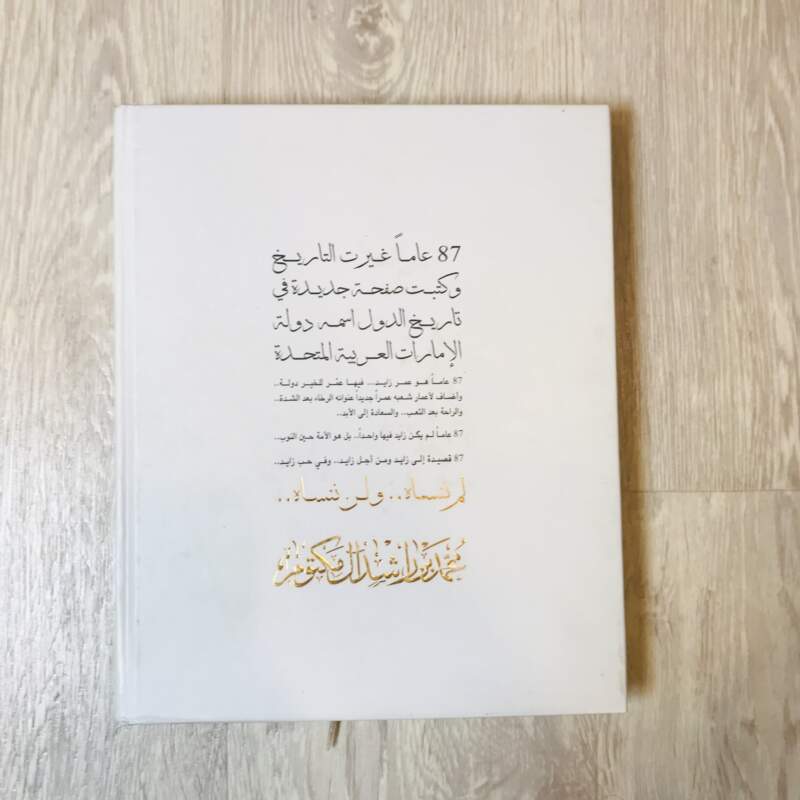 87 عاماً غيرت التاريخ
وكتبت صفحة جديدة في
تاريخ الدول اسمه دولة
الإمارات العربية المتحدة
87 عاماً هو عمر زايد.. فيها عمّر للخير دولة..
وأضاف لأعمار شعبه عمراً جديداً عنوانه الرخاء بعد الشدة..
والراحة بعد التعب.. والسعادة إلى الأبد..
87 عاماً لم يكن زايد فيها واحداً.. بل هو الأمة حين النوب..
87 قصيدة إلى زايد ومن أجل زايد.. وفي حب زايد..
لم ننساه.. ولن ننساه..
محمد بن راشد آل مكتوم